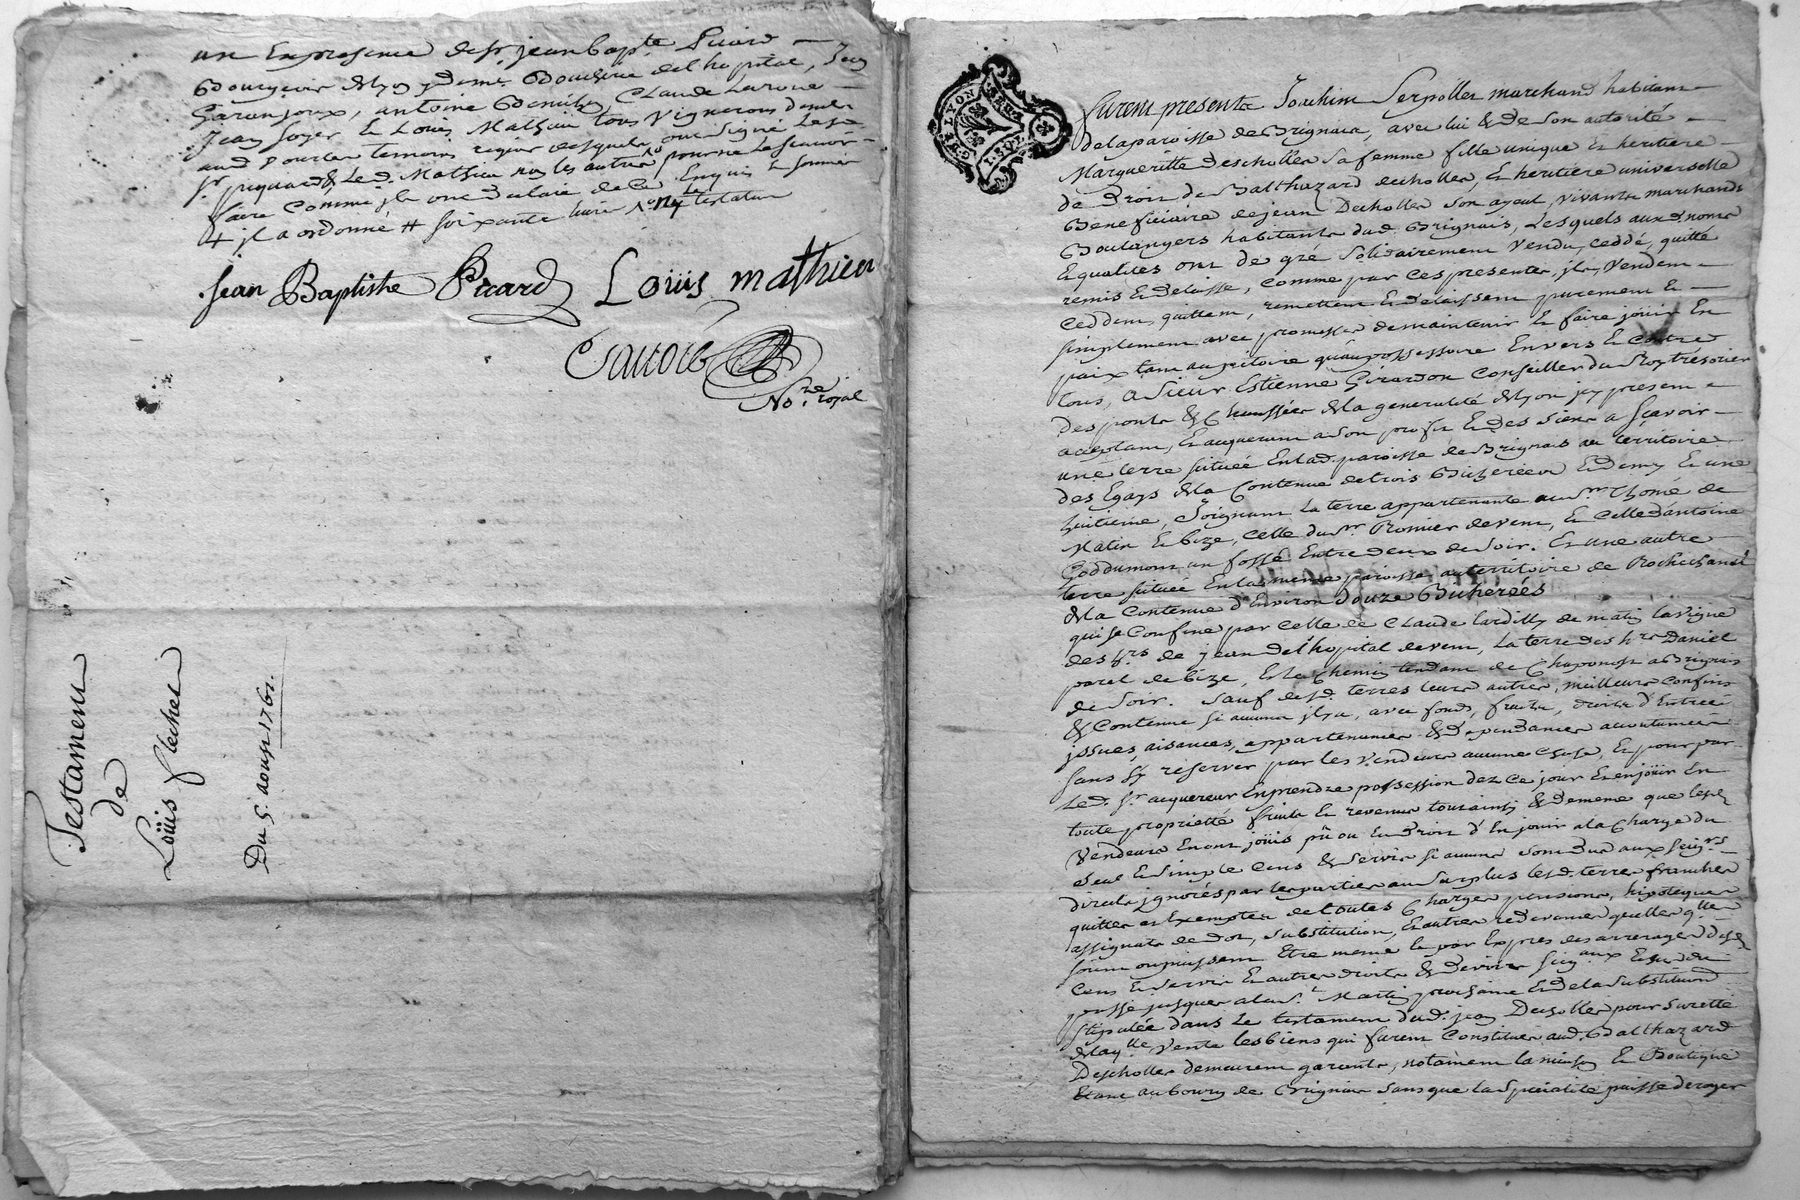 an En presence de sr jean bapte Picard
Bourgeois de lyon y dem.t Boucherie de l'hopital, Jean
Garanjoux, antoine Benuihy, Claude Larone
Jean Soyer et Louis Mathieu tous vignerons dem.t
aud. pour les temoins requis desquels ont signé led.
sr piquard & Led. Mathieu non les autres pour ne Le scavoir
faire comme ils ont declaré de ce Enquis et sommés
+ il a ordonné # soixante livres Ny Le testateur
Jean Baptiste Picard Loüis mathieu
No.re royal
Testament
de
Loüis flechet
Du 5.e aoust 1761.
GNE. LYON
Furent presents Joachim Serpollet marchand habitant
de la paroisse de Brignais, avec lui & de Son autorité
Margueritte descholles sa femme fille unique et heritiere
de droit de Balthazard descholles, et heritiere universelle
Beneficiaire de jean Descholles Son ayeul, vivants marchands
Boulangers habitants dud. Brignais, Lesquels aux d. noms
Et qualités ont de gré Solidairement Vendu, ceddé, quitté
remis Et delaissé, comme par ces presentes, ils vendent
ceddent, quittent, remettent Et delaissent purement et
simplement avec promesses de maintenir Et faire joüir En
paix tant au petitoire qu'au possessoire Envers Et contre
tous, a Sieur Estienne Girardon Conseiller du Roy trésorier
des ponts & Chaussées de la generalité de lyon icy present
acceptant, Et acquerant a son profit Et des siens a Sçavoir
une terre située En lad. paroisse de Brignais au territoire
des Egays de la Contenue de trois Bicherées Et demy Et une
huitieme, Joignant La terre appartenante au sr Thomé de
Matin Et bize, celle du sr. Romier de vent, Et celle d'antoine
Goddumont un fossé Entre deux de Soir. Et une autre
terre située En la même paroisse au territoire de Rochechanel
de la Contenue d'Environ Douze Bicherées
qui se Confine par celle de Claude lardilly de matin la vigne
des hrs de jean de l'hopital de vent, La terre des hrs Daniel
parel de bize, Et Le Chemin tendant de Chaponost a Brignais
de Soir. Sauf desd. terres leurs autres, meilleurs Confins
& Contenue si aucuns il y a, avec fonds, fruits, droits d'Entrées
issues, aisances, appartenances & dependances accoutumées
Sans s'y réserver par les Vendeurs aucune chose, Et pour par
Led. sr. acquereur En prendre possession dez ce jour Et en joüir En
toute proprieté fruits Et revenus toussaints & de meme que lesd.
Vendeurs En ont joüis pû ou Eu Droit d'En joüir a la Charge du
Seul et Simple Cens & Servis si aucuns Sont dus aux Seigrs
directs ignorés par les parties au Surplus lesd. terres franches
quittes et Exemptes de toutes Charges pensions, hipoteques
assignats de dot, Substitution, Et autres redevances quelles q'lles
soient ou puissent Etre meme et par Exprès des arrerages desd.
Cens Et Servis Et autres droits & devoirs seig.aux Et du
passé jusques a la St. Martin prochaine Et de la Substitution
Stipulée dans Le testament dud. jean Descholles pour Sureté
de laq.lle vente les biens qui furent Constitués aud. Balthazard
Descholles demeurent garants, notament la maison Et Boutique
Etant au bourg de Brignais Sans que la Specialité puisse deroger